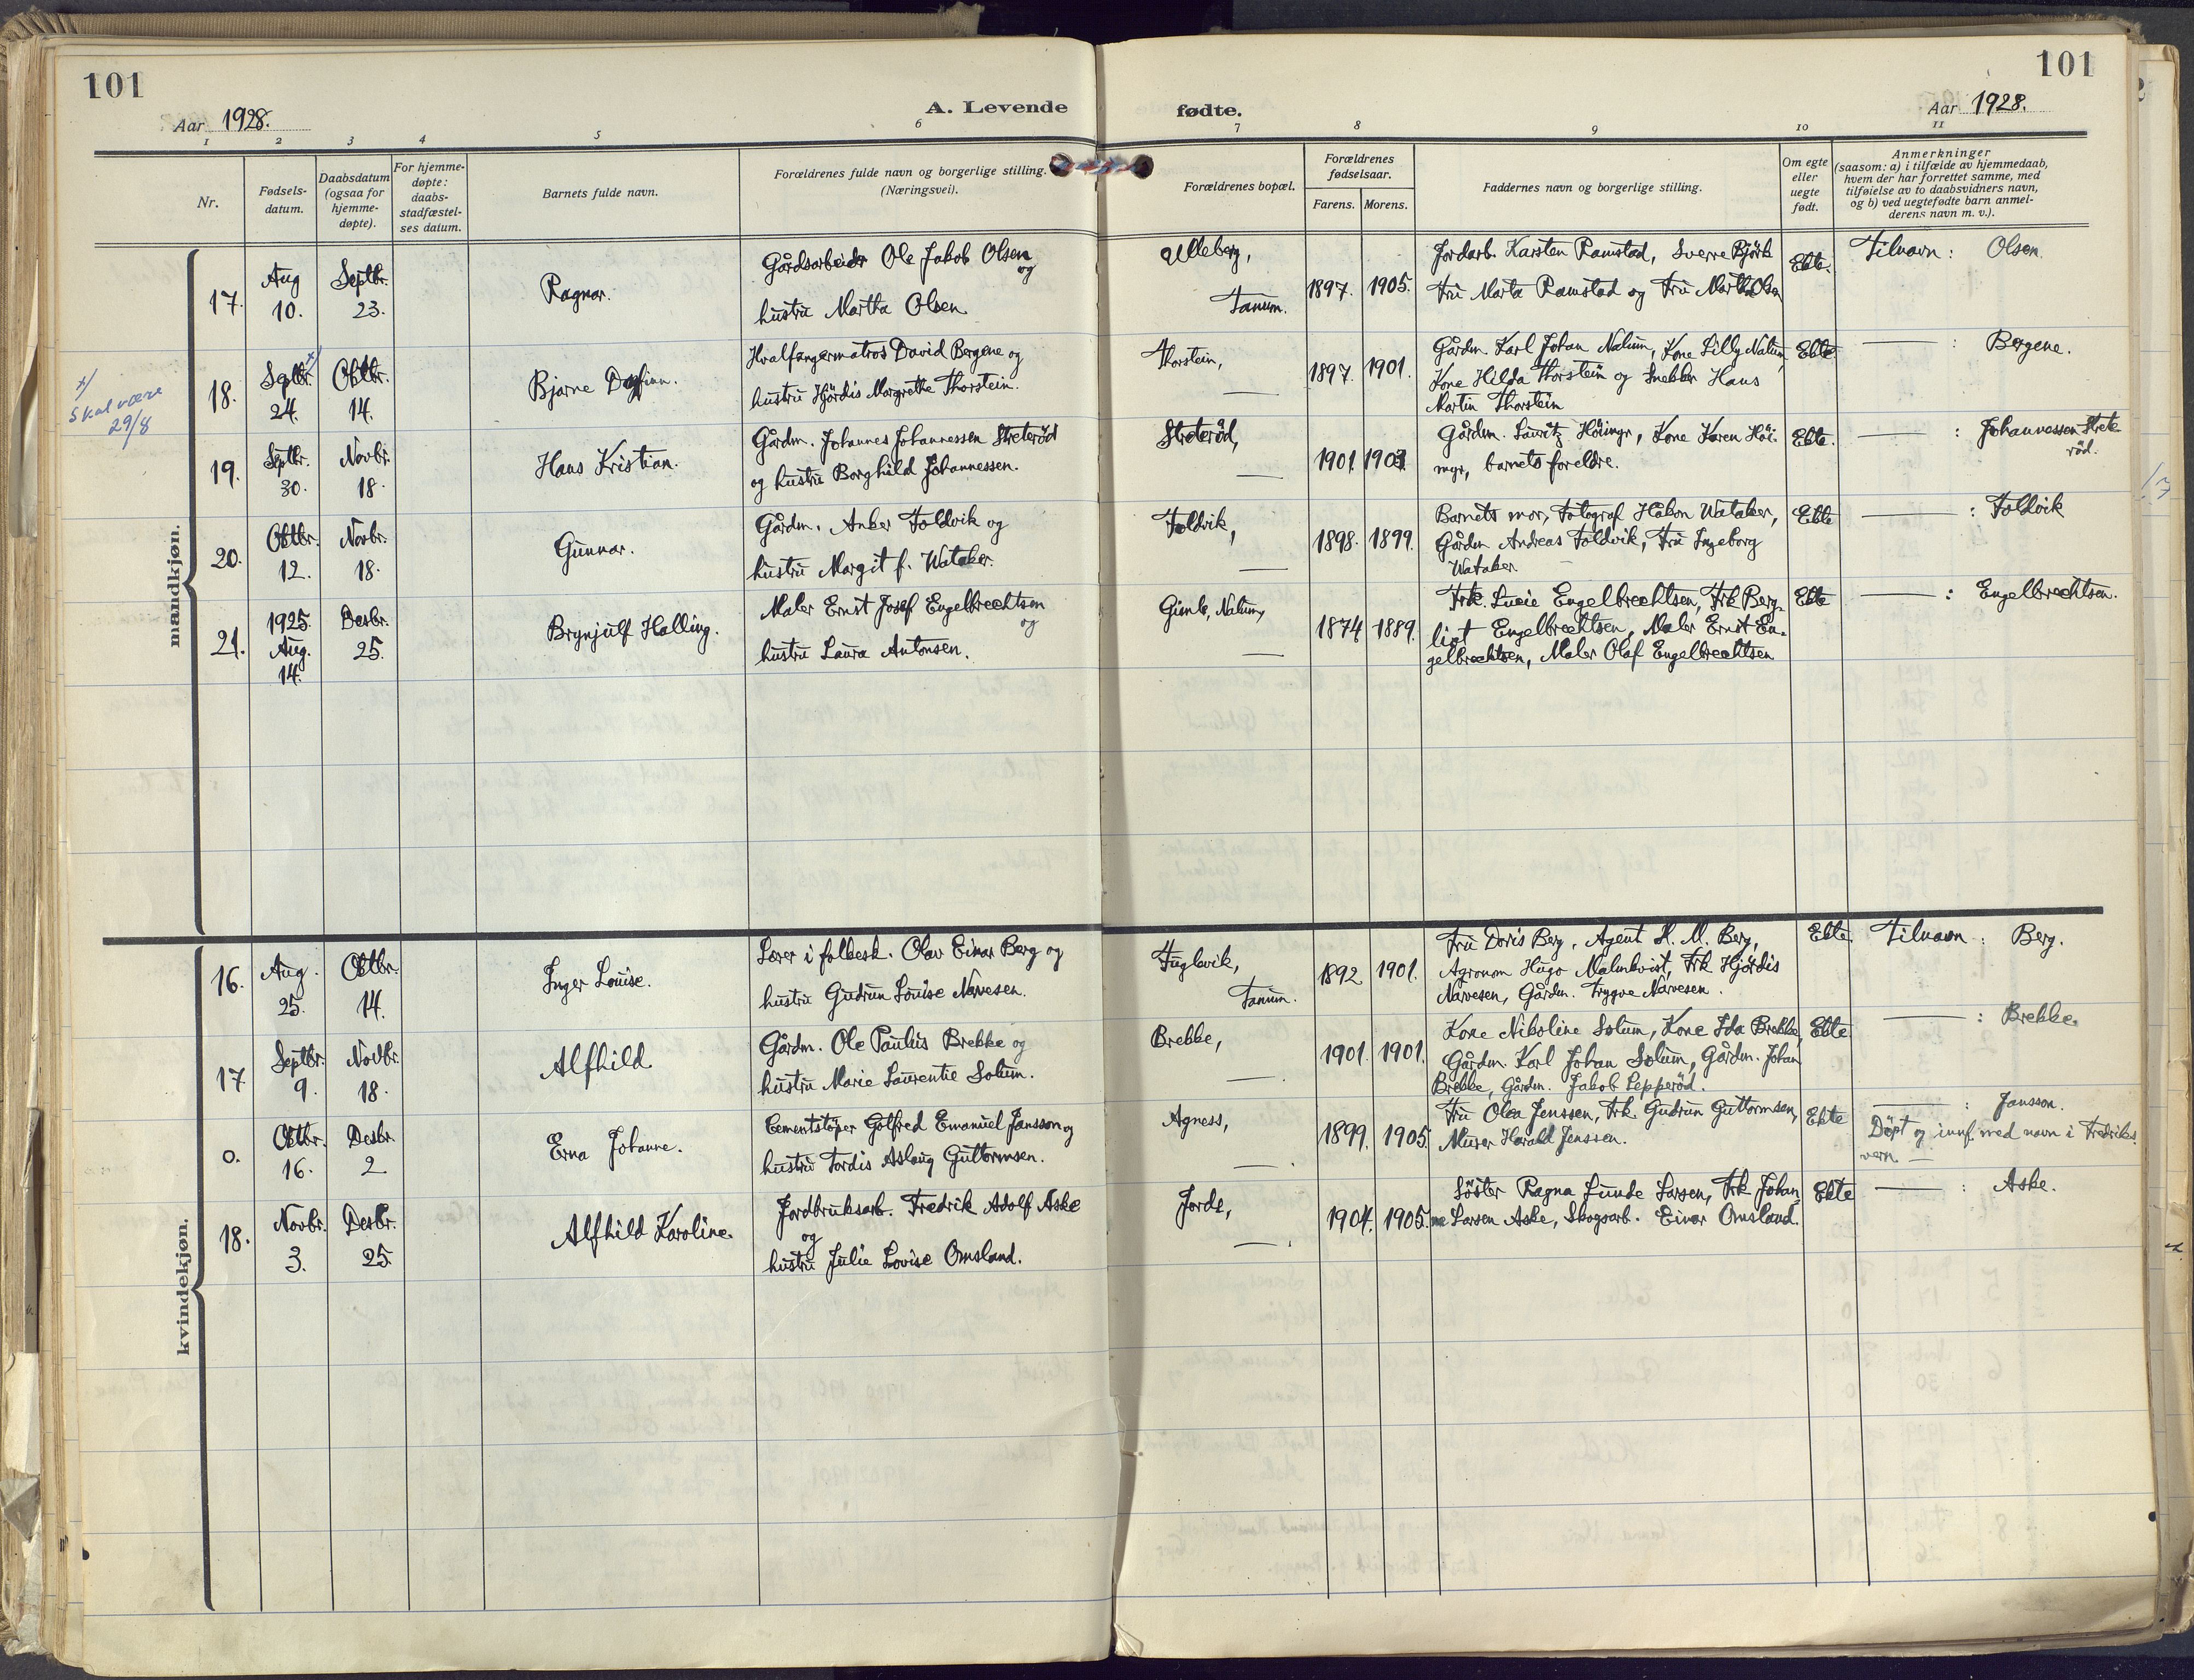 101
101
Aar 1928.
A. Levende
fødte.
Aar 1928.
1 2 3 4 5 6 7 8 9 10 11
Nr.
Fødsels-
datum.
Daabsdatum
(ogsaa for
hjemme-
døpte).
For hjemme-
døpte:
daabs-
stadfæstel-
ses datum.
Barnets fulde navn.
Forældrenes fulde navn og borgerlige stilling.
(Næringsvei).
Forældrenes bopæl.
Forældrenes
fødselsaar.
Farens. Morens.
Faddernes navn og borgerlige stilling.
Om egte
eller
uegte
født.
Anmerkninger
(saasom: a) i tilfælde av hjemmedaab,
hvem der har forrettet samme, med
tilføielse av to daabsvidners navn,
og b) ved uegtefødte barn anmel-
derens navn m. v.).
mandkjøn.
17.
Aug
10.
Septbr.
23.
Ragnar.
Gårdsarbeider Ole Jakob Olsen
og
hustru Martha Olsen.
Ulleberg,
Tanum.
1897. 1905.
Jordarb. Karsten Ramstad, Sverre Björk
Fru Marta Ramstad og Fru Martha Olsen
Ekte.
Tilnavn: Olsen.
x/
Skal være
29/8
18.
Septbr. x/
24.
Oktbr.
14.
Bjarne Dagfinn.
Hvalfangermatros David Bergene og
hustru Hjördis Margrethe Thorstein.
Thorstein,
—
1897. 1901.
Gårdm. Karl Johan Nalum, Kone Lilly Nalum,
Kone Hilda Thorstein og Snekker Hans
Martin Thorstein
Ekte
— : Bergene.
19.
Septbr.
30.
Novbr.
18.
Hans Kristian.
Gårdm. Johannes Johannessen Streteröd
og hustru Borghild Johannessen.
Streteröd,
—
1901. 1903.
Gårdm. Lauritz Höimyr, Kone Karen Höi-
myr, barnets foreldre.
Ekte.
— : Johannessen Strete-
röd.
20.
Oktbr.
12.
Novbr.
18.
Gunnar.
Gårdm. Anker Foldvik og
hustru Margit f. Wataker.
Foldvik,
—
1898. 1899.
Barnets mor, Fotograf Håkon Wataker,
Gårdm. Andreas Foldvik, Fru Ingeborg
Wataker.
Ekte
— : Foldvik
21.
1925.
Aug.
14.
Desbr.
25.
Brynjulf Halling.
Maler Ernst Josef Engelbrechtsen
og
hustru Laura Antonsen.
Gimle, Nalum,
—
1874 1889.
Frk. Lucie Engelbrechtsen, Frk Berg-
liot Engelbrechtsen, Maler Ernst En-
gelbrechtsen, Maler Olaf Engelbrechtsen
Ekte
— : Engelbrechtsen.
kvindekjøn.
16.
Aug.
25.
Oktbr.
14.
Inger Louise.
Lærer i folkesk. Olav Einar Berg og
hustru Gudrun Louise Narvesen.
Fuglevik,
Tanum.
1892 1901.
Fru Doris Berg, Agent H. M. Berg,
Agronom Hugo Malmkvist, Frk Hjördis
Narvesen, Gårdm. Trygve Narvesen.
Ekte.
Tilnavn: Berg.
17.
Septbr.
9.
Novbr.
18.
Alfhild
Gårdm. Ole Paulus Brekke og
hustru Marie Laurentie Solum.
Brekke,
—
1901. 1901.
Kone Nikoline Solum, Kone Ida Brekke,
Gårdm. Karl Johan Solum, Gårdm. Johan
Brekke, Gårdm. Jakob Lepperöd.
Ekte
— : Brekke.
0.
Oktbr.
16.
Desbr.
2
Erna Johanne.
Cementstöper Gotfred Emanuel Jansson og
hustru Tordis Aslaug Guttormsen.
Agness,
—
1899. 1905.
Fru Olea Jenssen, Frk. Gudrun Guttormsen,
Murer Harald Jenssen.
Ekte
— : Jansson.
Döpt og innf. med navn i Fredriks-
vern. —
18.
Novbr.
3.
Desbr.
25.
Alfhild Karoline.
Jordbruksarb. Fredrik Adolf Aske
og
hustru Julie Lovise Omsland.
Jorde,
—
1904. 1905.
Söster Ragna Lunde Larsen, Frk Johan-
ne Larsen Aske, Skogsarb. Einar Omsland.
Ekte
— : Aske.